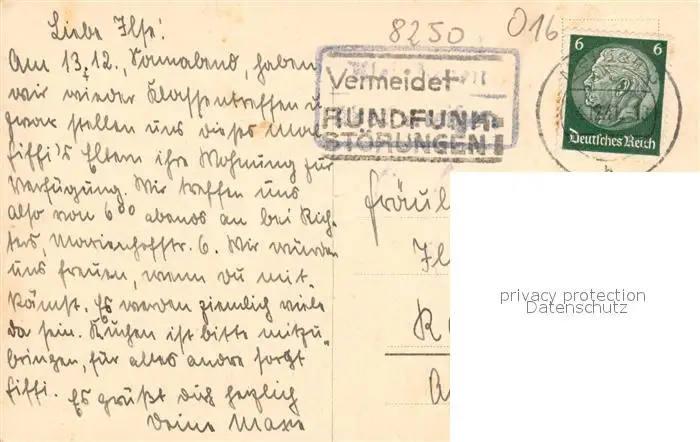 Liebe Ilse!
Am 13.12., Sonnabend, haben
wir wieder Klassentreffen u.
zwar stellen uns dieses Mal
Fiffi's Eltern ihre Wohnung zur
Verfügung. Wir treffen uns
also von 6⁰⁰ abends an bei Rich-
ters, Marienhofstr. 6. Wir würden
uns freuen, wenn Du mit-
kämst. Es werden ziemlich viele
da sein. Kuchen ist bitte mitzu-
bringen, für alles andre sorgt
Fiffi. Es grüßt dich herzlich
Deine Maxe
8250
016
Vermeidet
RUNDFUNK-
STÖRUNGEN!
6 6
Deutsches Reich
b
Fräul
Il
privacy protection
Datenschutz